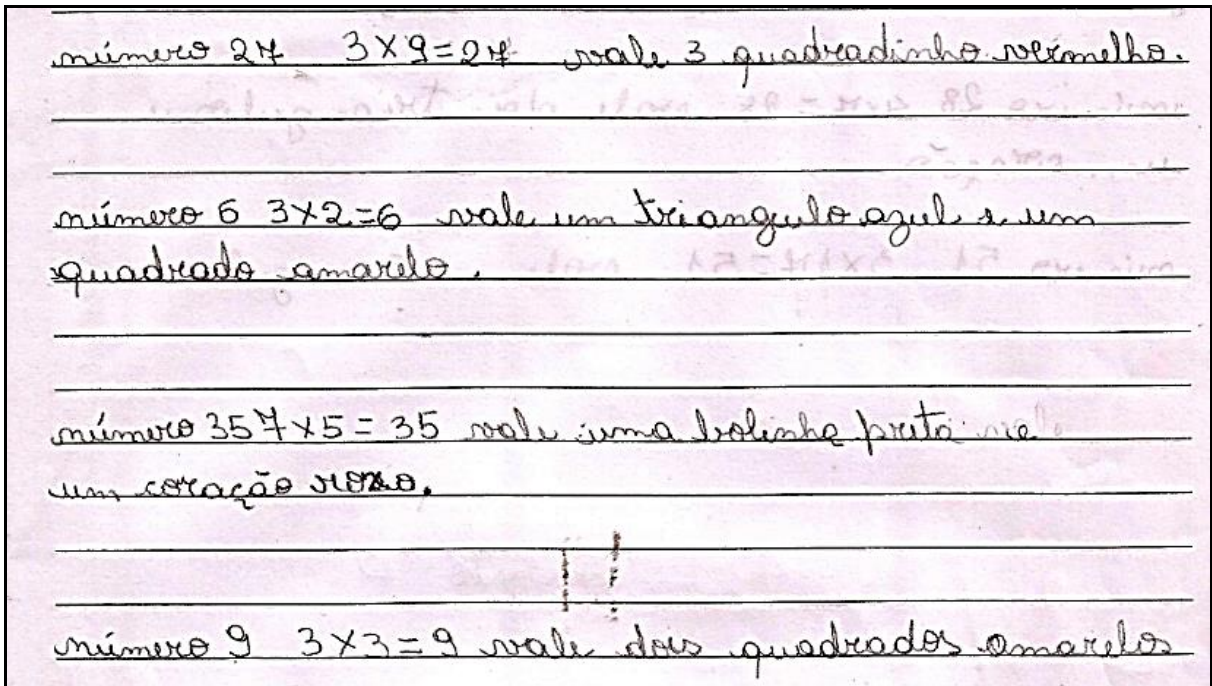 número 27 3×9=27 vale 3 quadradinho vermelho.
número 6 3×2=6 vale um triangulo azul e um
quadrado amarelo.
número 35 7×5=35 vale uma bolinha preta e
um coração roxo.
número 9 3×3=9 vale dois quadrados amarelos